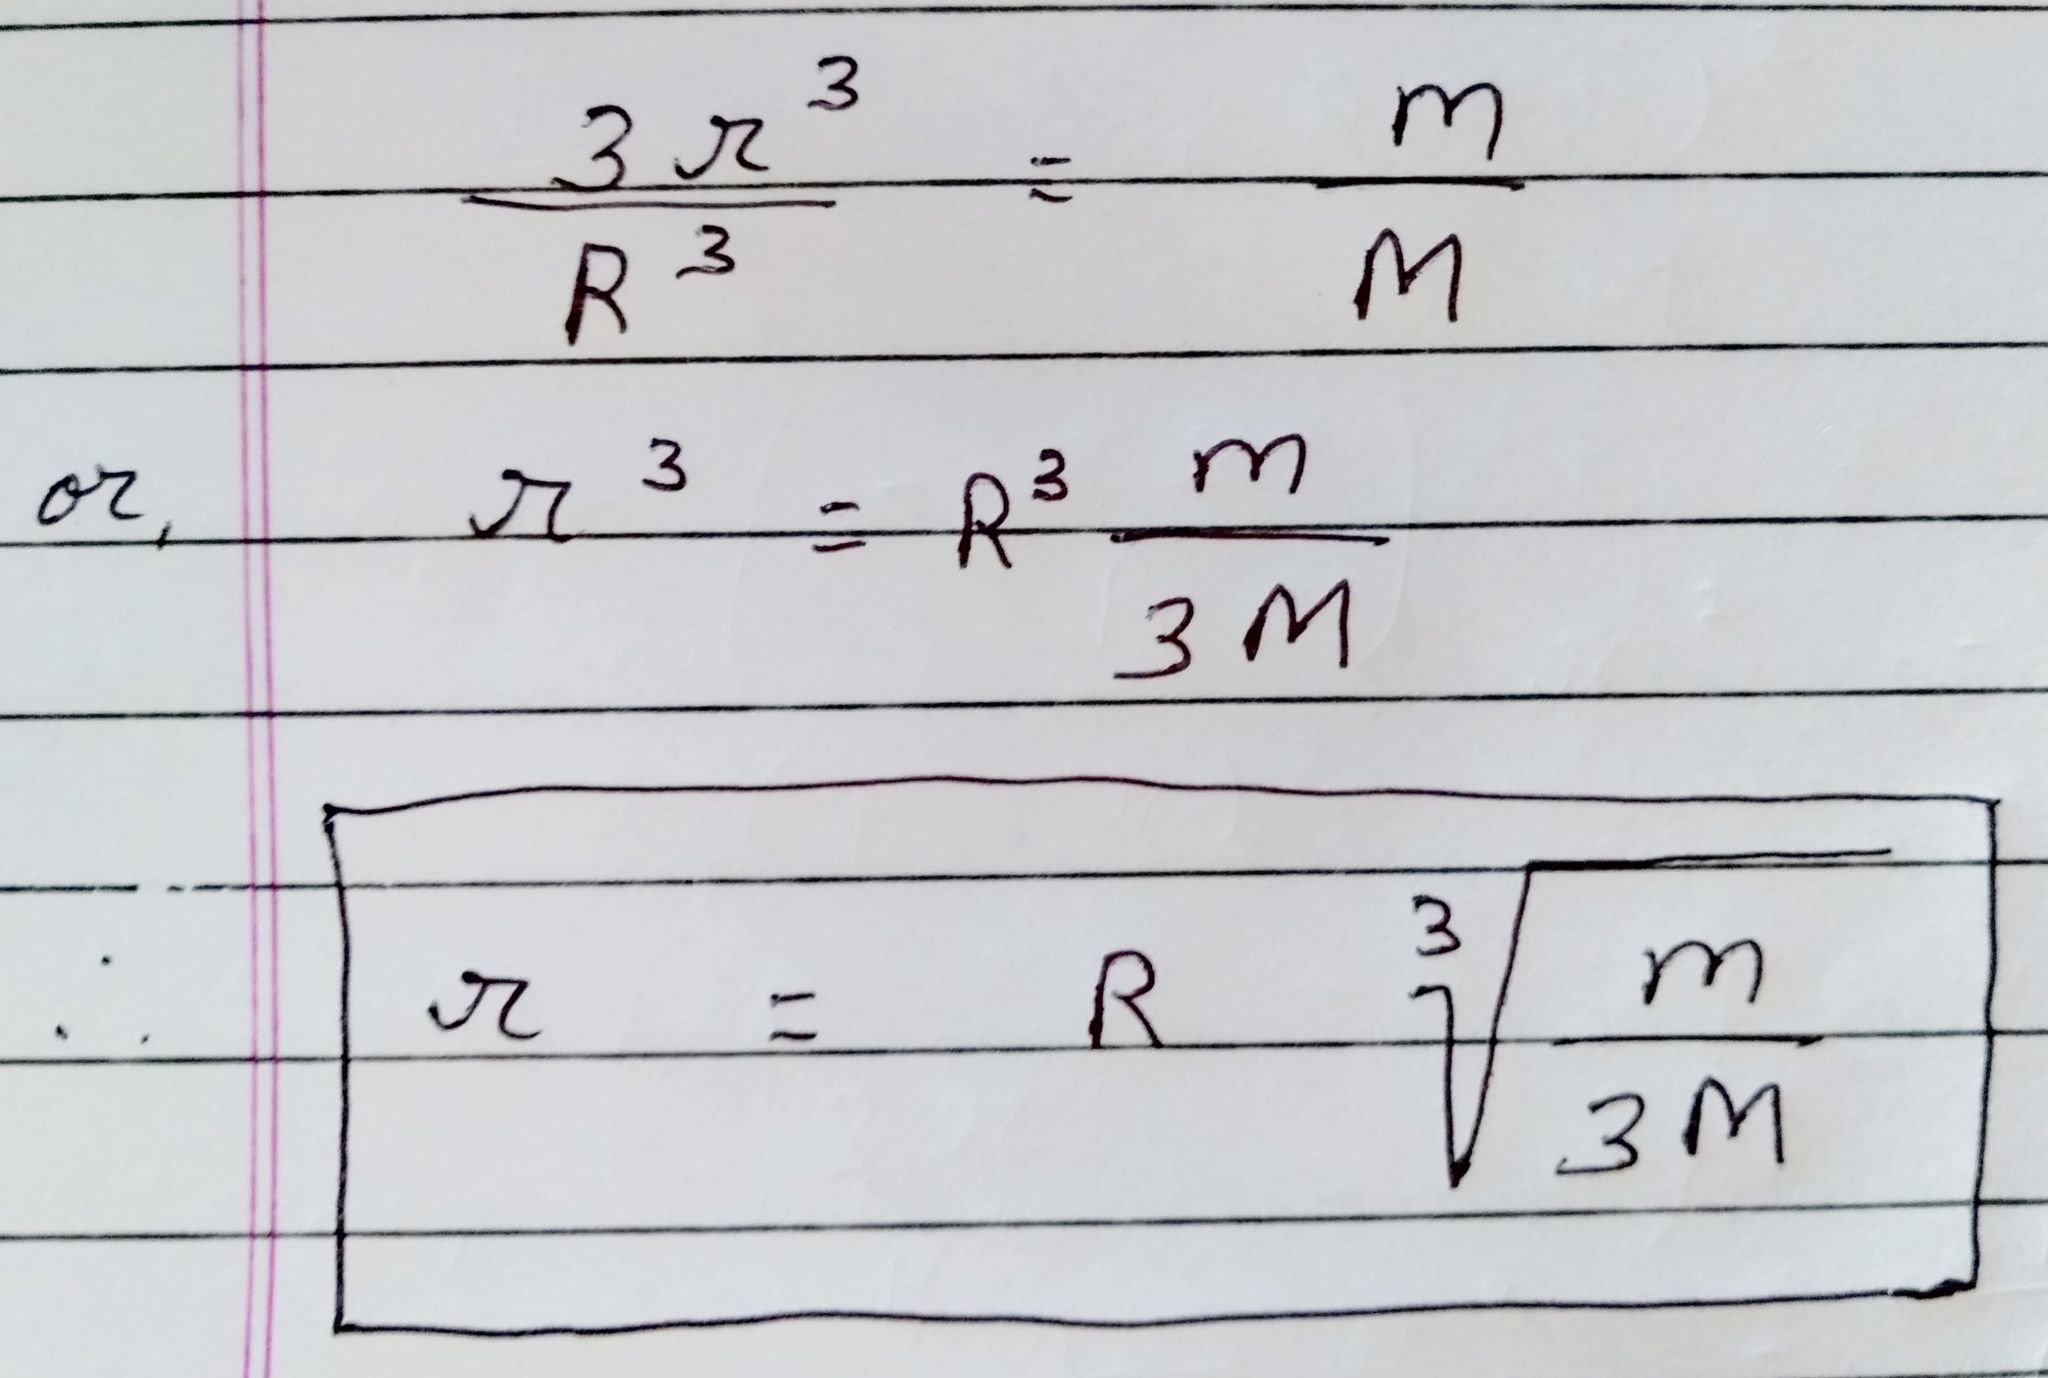 3 r³ / R³ = m / M
or, r³ = R³ m / 3 M
∴ r = R ∛(m / 3 M)